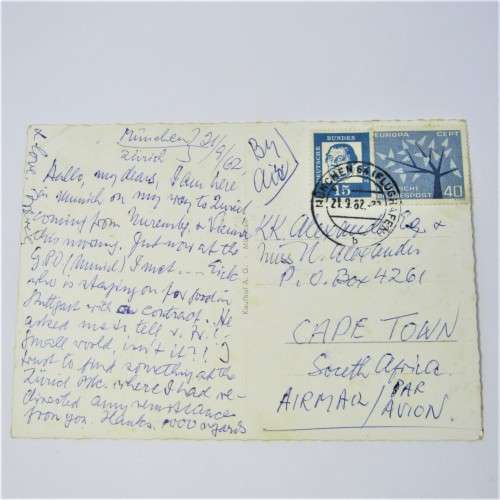 München 21/9/62
Zürich
By
Air
Hello, my dears, I am here
in Munich on my way to Zürich
coming from Nuremberg & Vienna
this morning. Just now at the
G.P.O (Munich) I met
who is staying on for good in
Stuttgart with a contract. He
asked me to tell
Small world, isn't it?! I
trust to find something at the
Zürich where I had re-
directed any remittance
from you. Thanks. 1000 regards
Kaufhof A.G.
DEUTSCHE BUNDES
15
EUROPA CEPT
DEUTSCHE BUNDESPOST 40
MÜNCHEN (FLUGHAFEN)
21.9.62
b
KK. Alexander &
Miss N. Alexander
P.O. Box 4261
CAPE TOWN
South Africa
AIRMAIL / PAR
AVION.